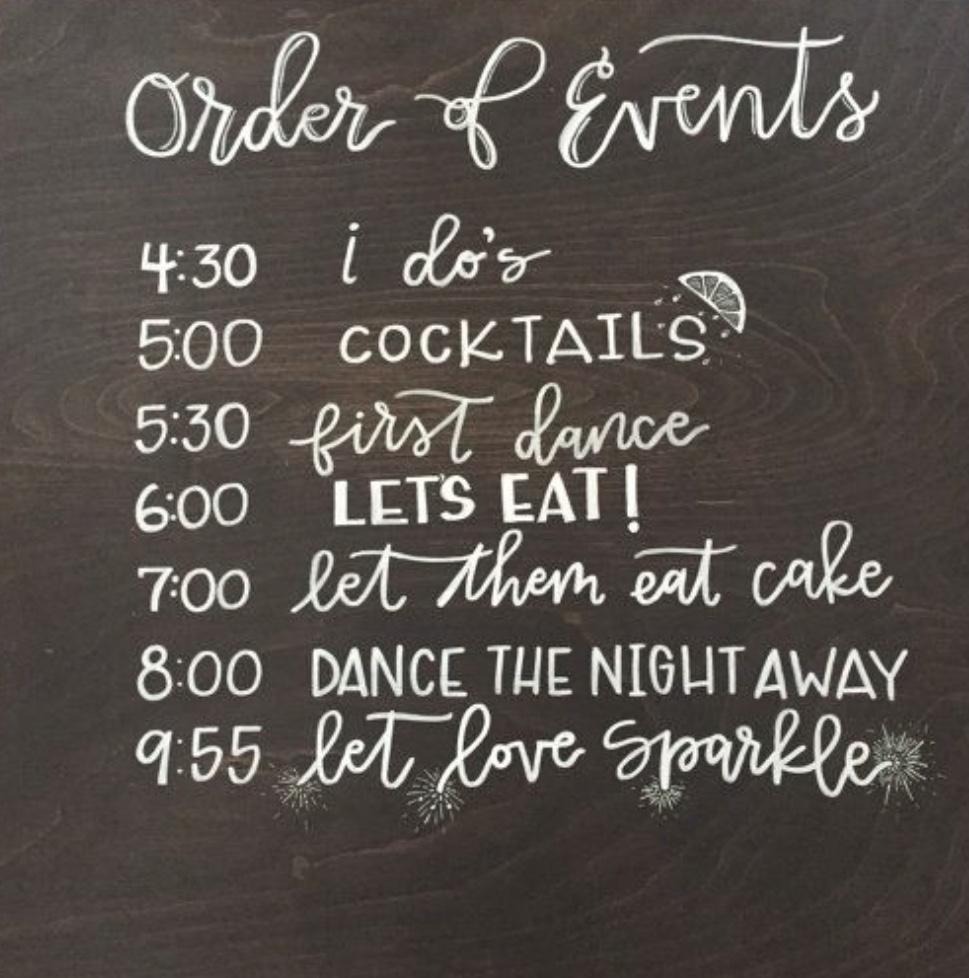 Order of Events
4:30 i do's
5:00 COCKTAILS
5:30 first dance
6:00 LET'S EAT!
7:00 let them eat cake
8:00 DANCE THE NIGHT AWAY
9:55 let love sparkle